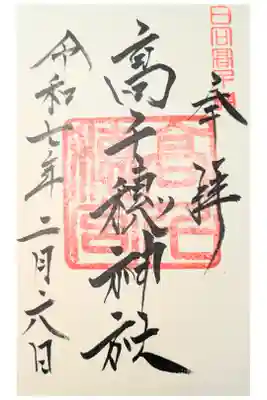 日向高千
奉拝
高千穂神社
令和七年二月六日